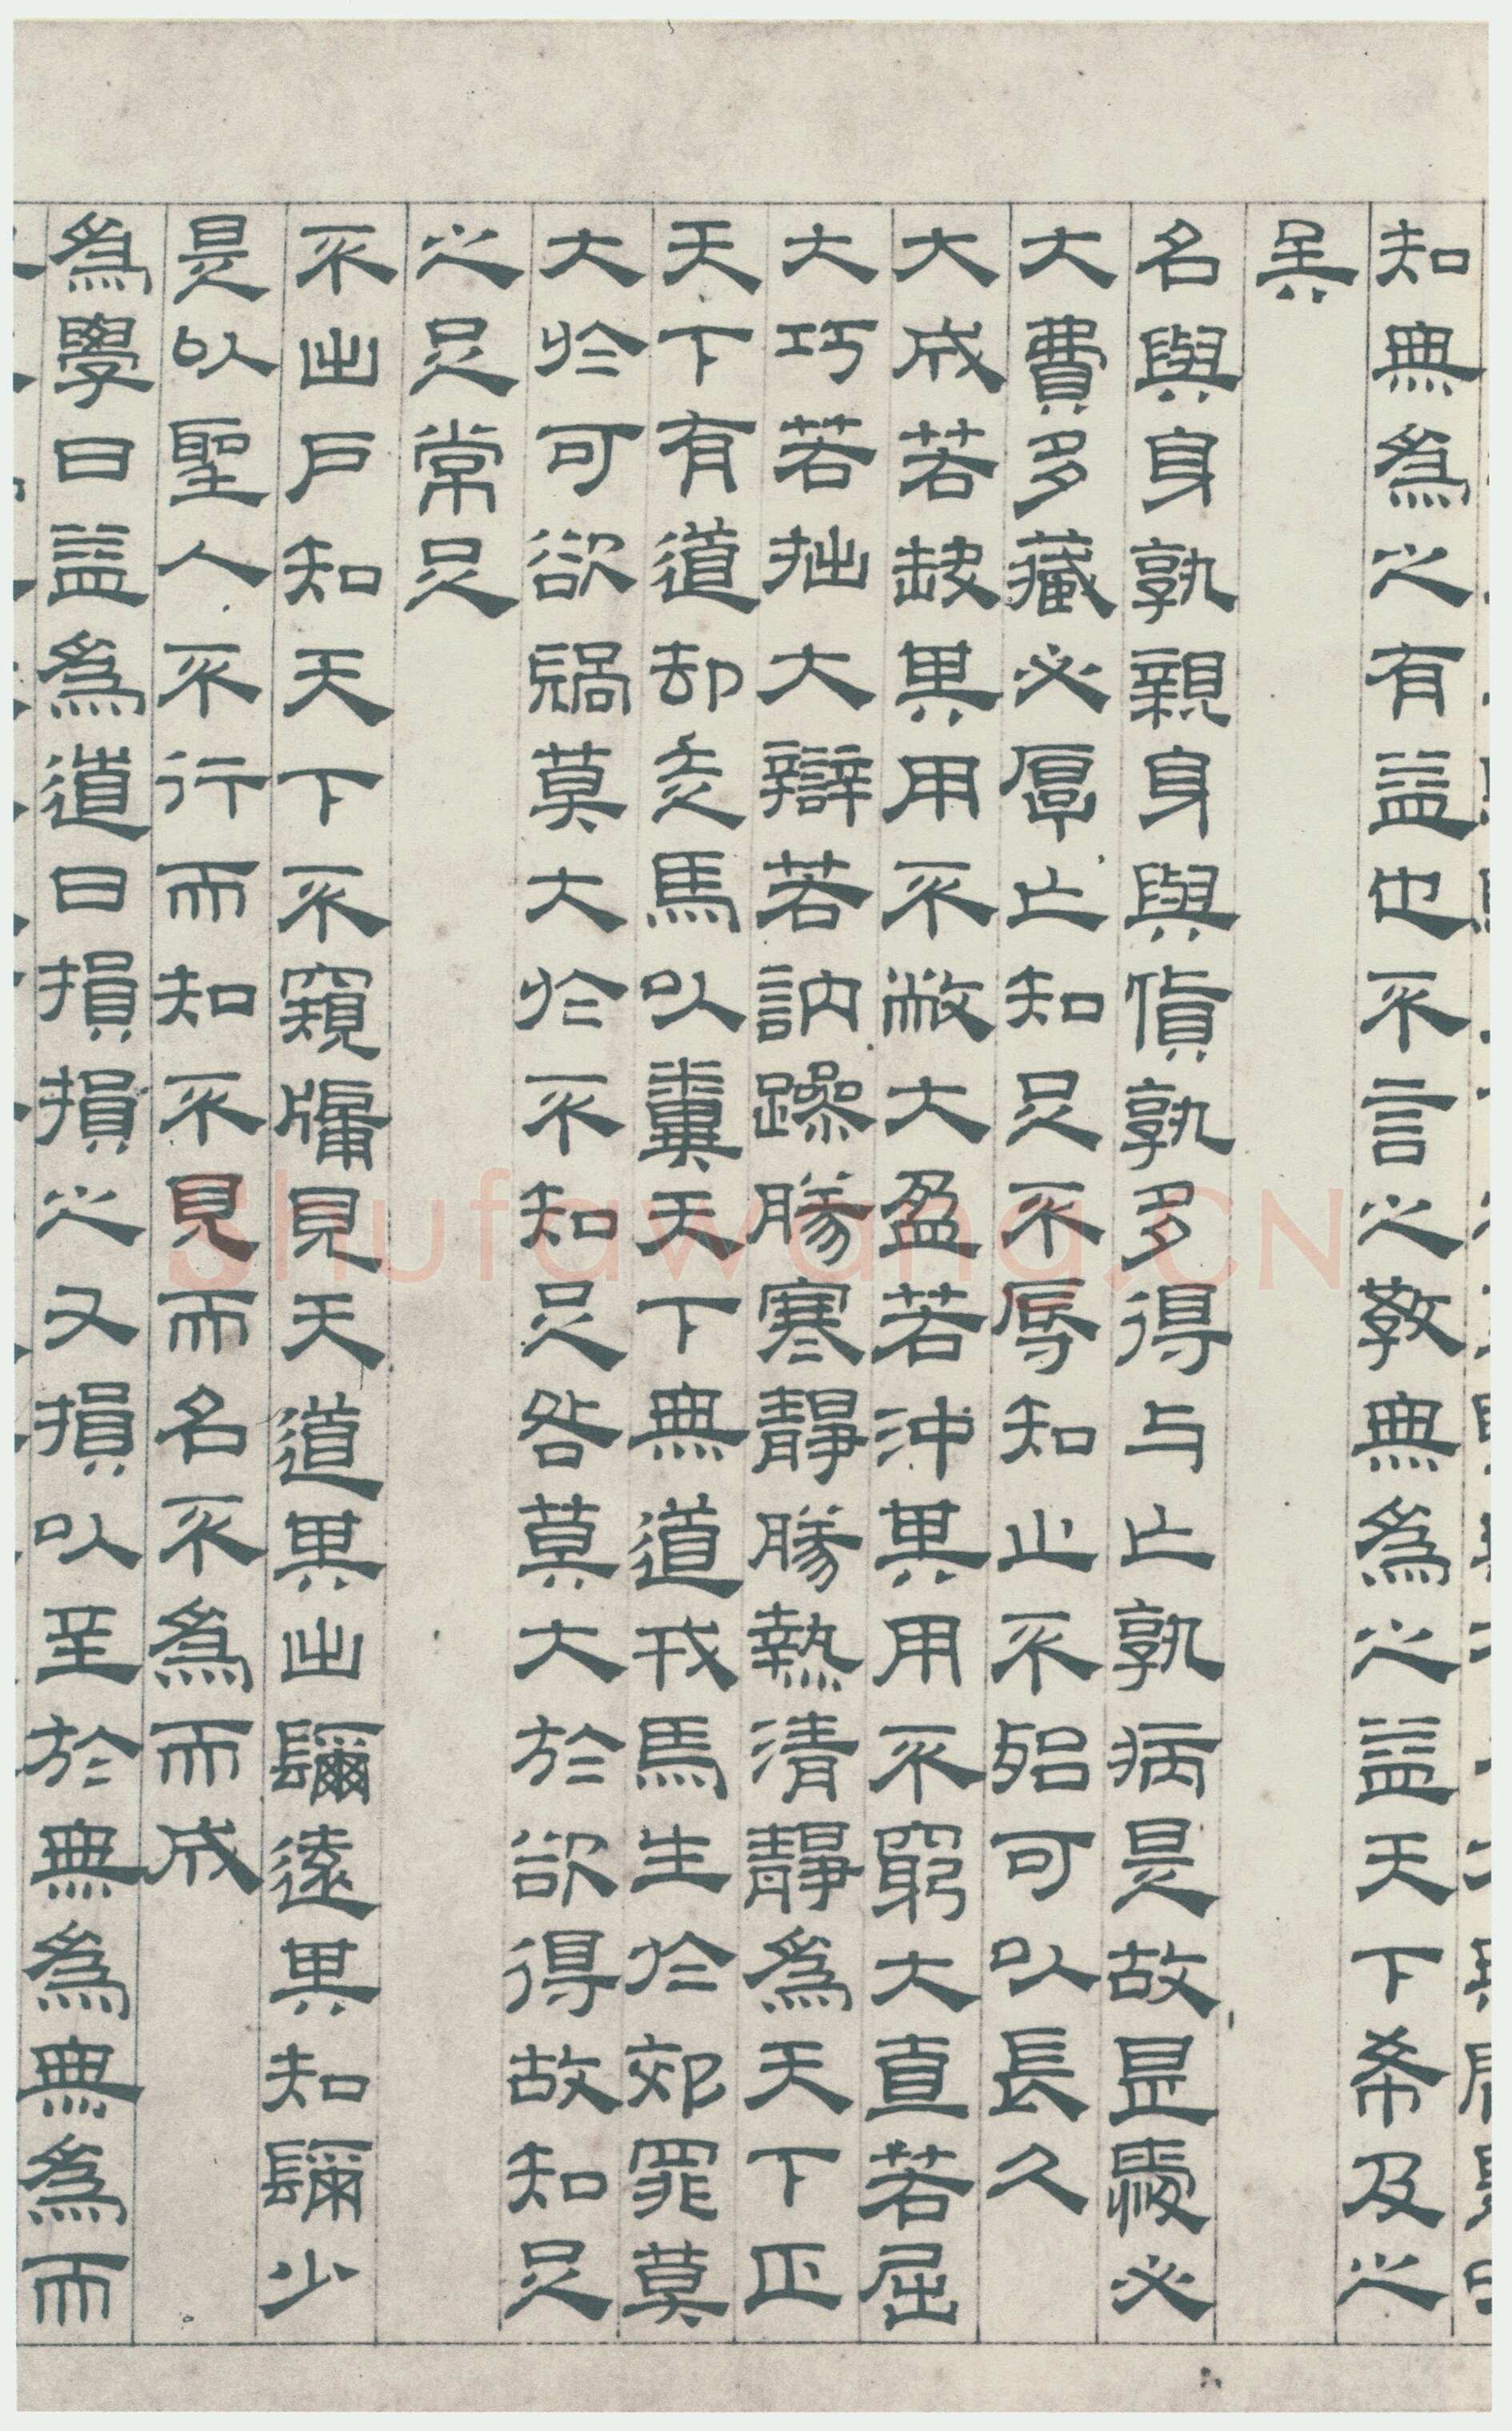 知無為之有益也不言之教無為之益天下希及之
矣
名與身孰親身與貨孰多得与亡孰病是故是愛必
大費多藏必厚亡知足不辱知止不殆可以長久
大成若缺其用不敝大盈若沖其用不窮大直若屈
大巧若拙大辯若訥躁勝寒靜勝熱清靜為天下正
天下有道却走馬以糞天下無道戎馬生於郊罪莫
大於可欲禍莫大於不知足咎莫大於欲得故知足
之足常足
不出戶知天下不窺牖見天道其出彌遠其知彌少
是以聖人不行而知不見而名不為而成
為學日益為道日損損之又損以至於無為無為而
shufawang.CN